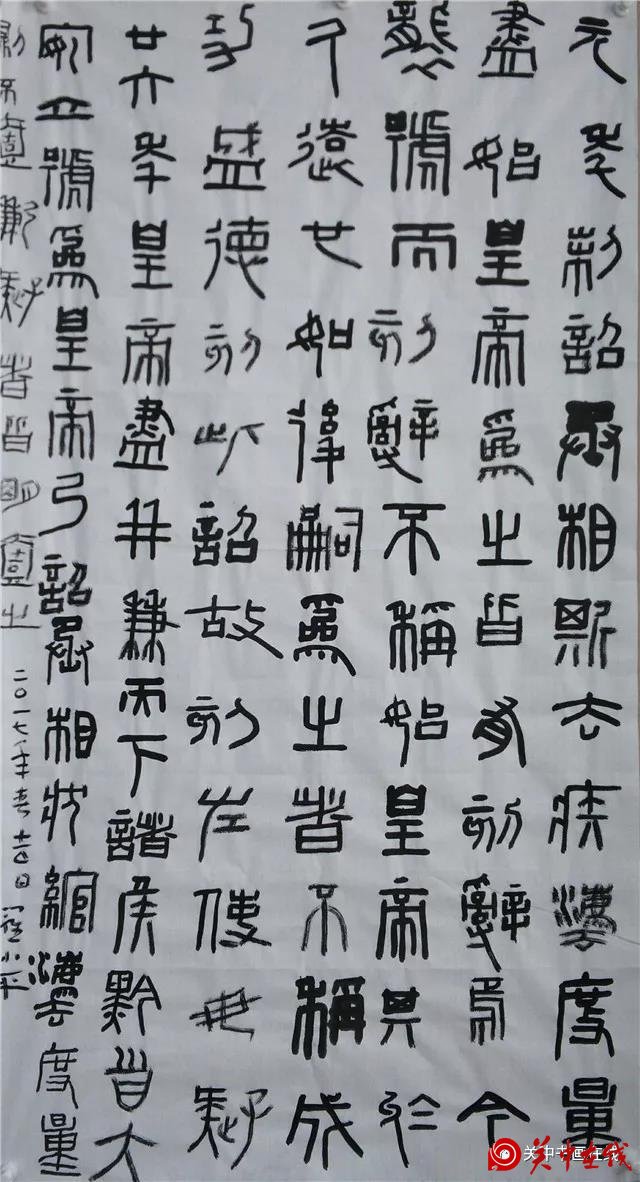 元年制詔丞相斯去疾灋度量
盡始皇帝爲之皆有刻辭焉今
襲號而刻辭不稱始皇帝其於
久遠也如後嗣爲之者不稱成
功盛德刻此詔故刻左使毋疑
廿六年皇帝盡并兼天下諸侯黔首大
安立號爲皇帝乃詔丞相狀綰灋度量
則不壹歉疑者皆明壹之
二〇一七年春 日 小平
关中书画在线
关中在线